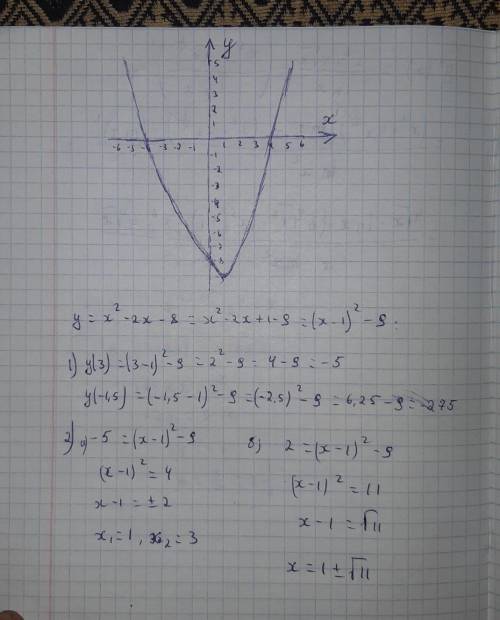 y
5
4
3
2
1
x
-6 -5 -4 -3 -2 -1 1 2 3 4 5 6
-1
-2
-3
-4
-5
-6
-7
-8
y = x² - 2x - 8 = x² - 2x + 1 - 9 = (x - 1)² - 9.
1) y(3) = (3 - 1)² - 9 = 2² - 9 = 4 - 9 = -5
y(-1,5) = (-1,5 - 1)² - 9 = (-2,5)² - 9 = 6,25 - 9 = -2,75
2) a) -5 = (x - 1)² - 9
(x - 1)² = 4
x - 1 = ± 2
x₁ = 1, x₂ = 3
в) 2 = (x - 1)² - 9
(x - 1)² = 11
x - 1 = √11
x = 1 ± √11